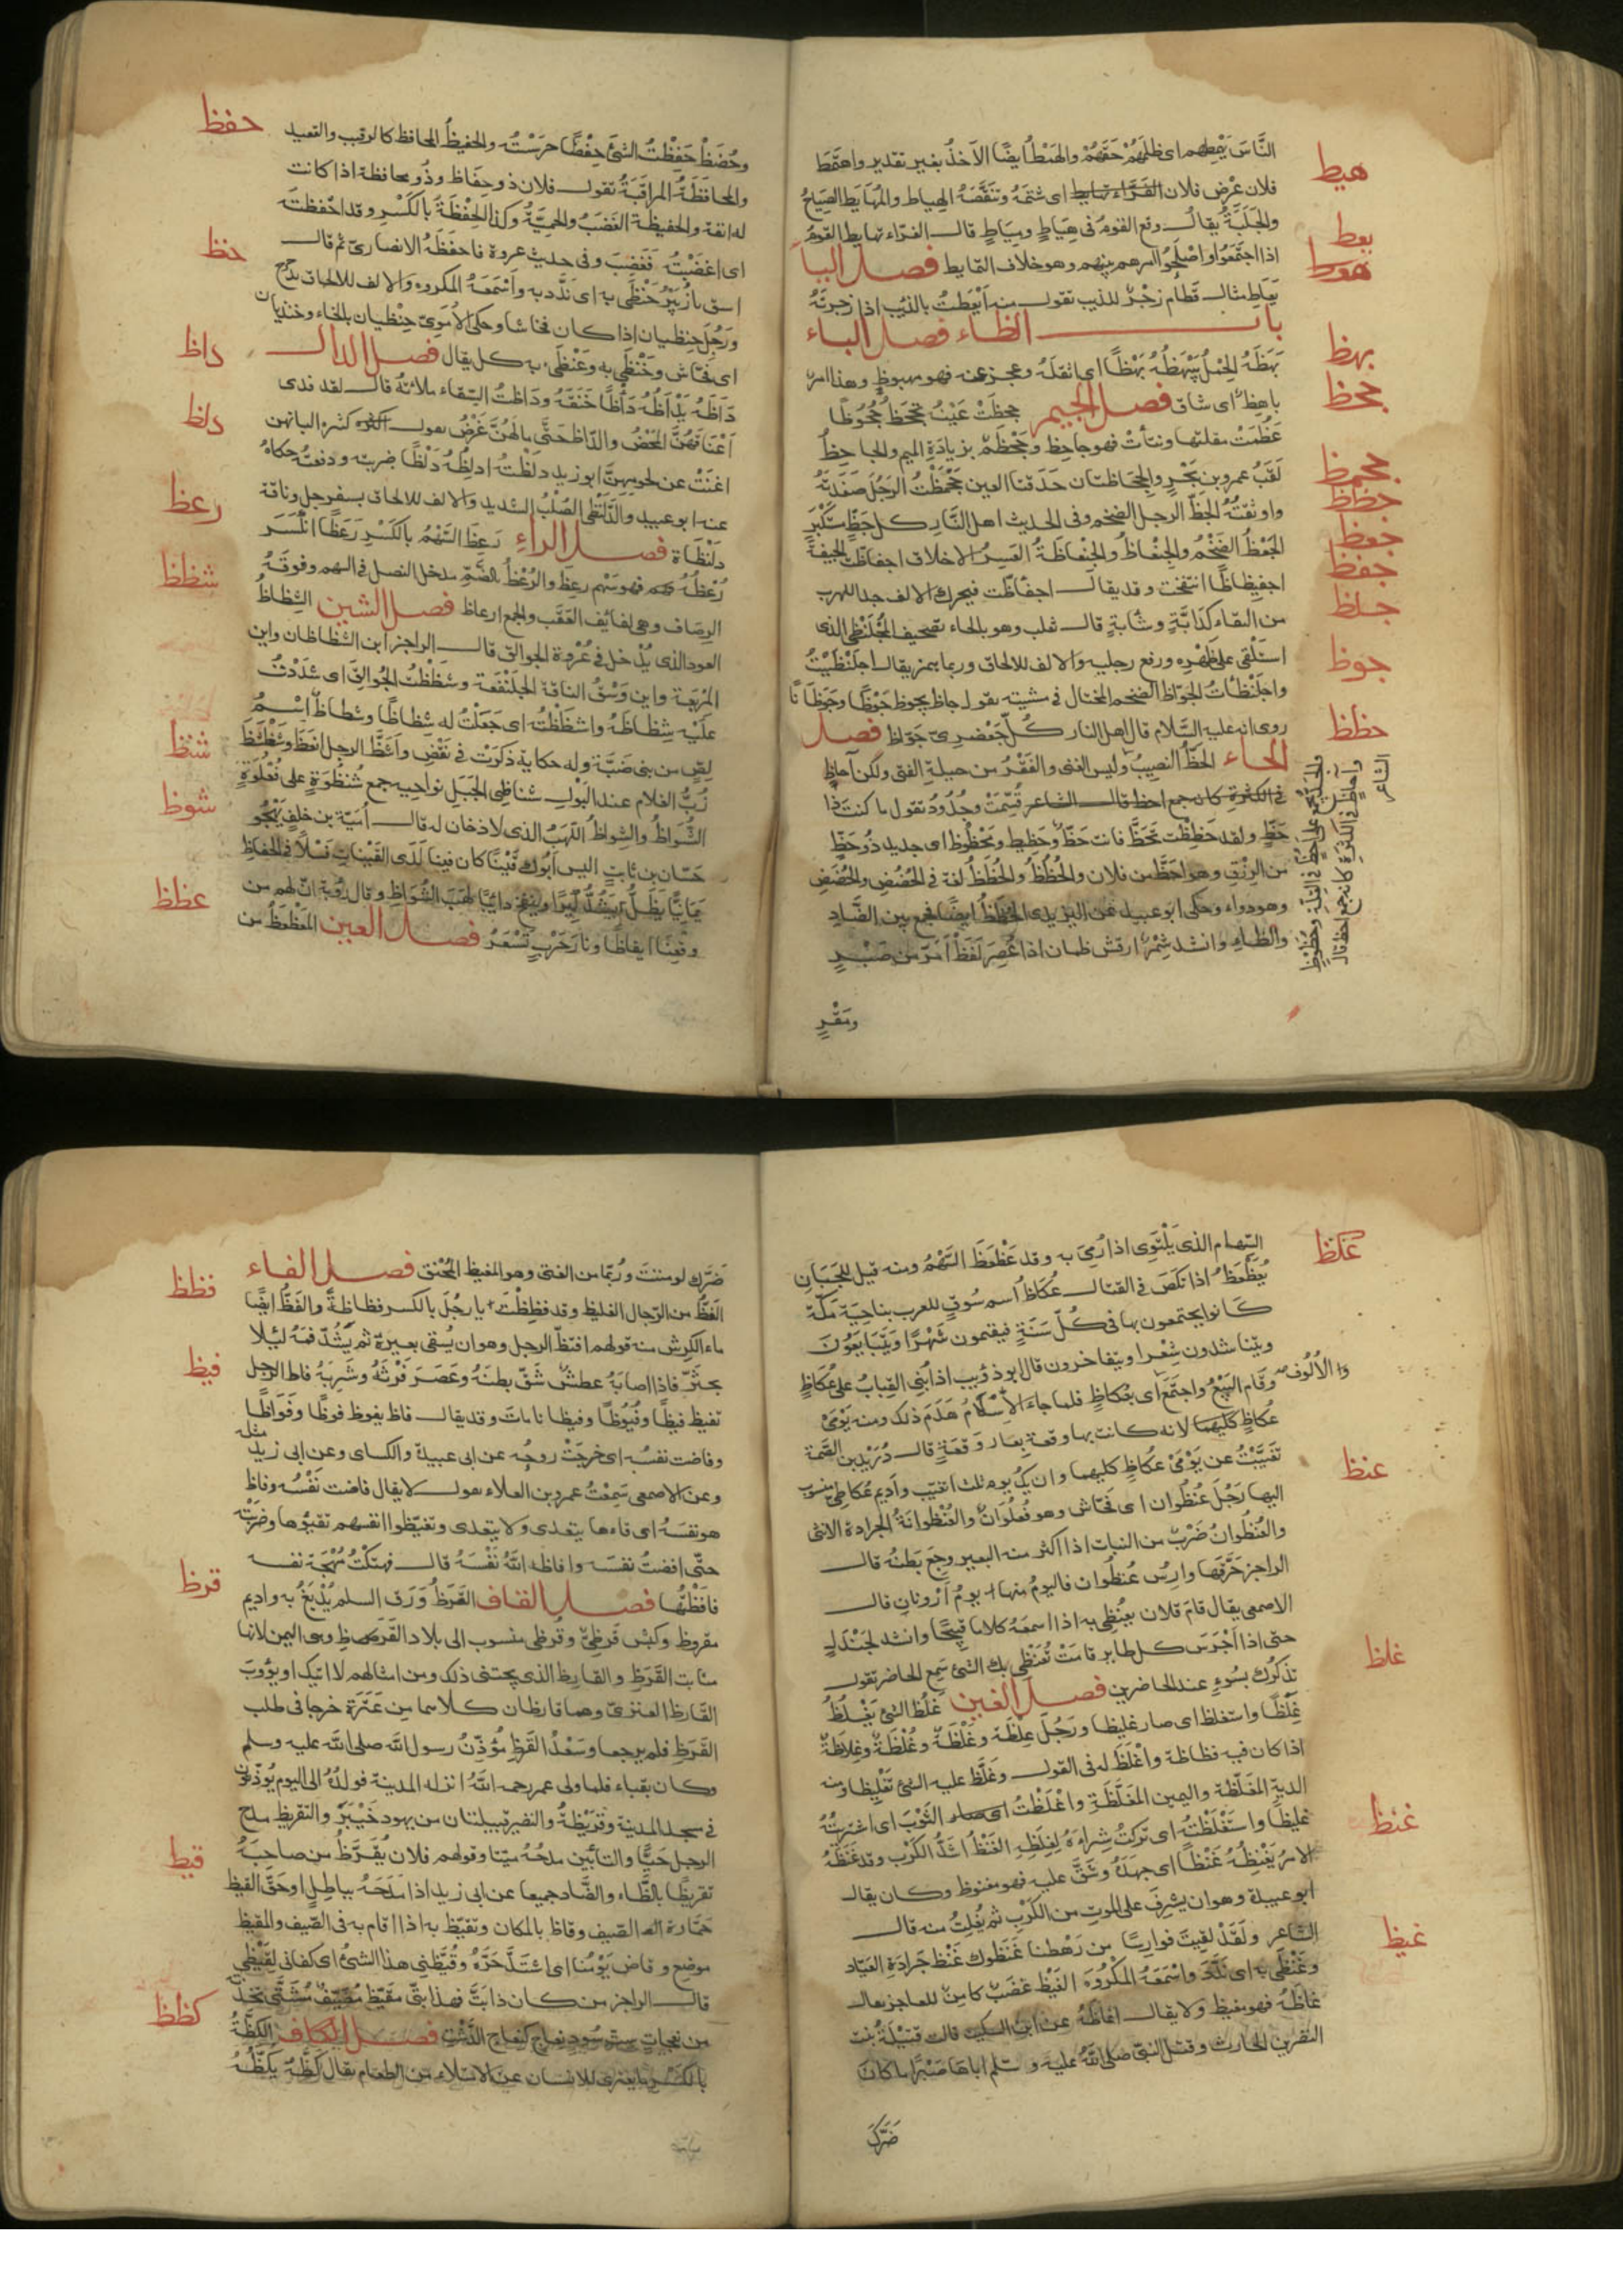 النَّاسَ يَهْمِطهم اى ظلمَهُمْ حَقَّهُمْ والهَمْطُ ايضًا الاَخذُ بغير تقدير واهتمَطَ
هيط
فلان عِرْض فلان اى شتمَهُ وتنَقَّصَهُ الهِياط والمُهَايَط الصِيَاحُ
والجَلَبَةُ يقالـ وقع القومُ فى هِيَاطٍ ومِيَاطٍ قالـ الفرّاء تهايط القومُ
يعط
هوط
اذا اجتَمَعُوا واصْلَحُوا امرهم بينهم وهو خلاف التمايط فصل اليا
يَعَاطِ مثالـ قَطَامِ زجْرٌ للذيب تقولـ منه اَيْعَطتُ بالذئب اذا زجرتَهُ
بابـ الظاء فصل الباء
بهظ
بَهَظَهُ الحِمْلُ يَبْهَظُهُ بَهْظًا اى اثقلَهُ وعجز عنه فهو مبهوظ وهذا امر
جحظ
باهِظٌ اى شاق فصل الجيم جحِظَتْ عَيْنُهُ تجحَظُ جُحُوظًا
عَظُمَتْ مقلتها ونتأتْ فهو جاحِظ وجَحْظَمٌ بزيادَةِ الميم والجاحِظُ
لقَبُ عمرو بن بَحْرٍ والجِحَاظتان حَدَقتا العين جَحْمَظْتُ الرجُلَ صَفَدتَهُ
جحمظ
جظظ
واوثقتُهُ الجَظُّ الرجل الضخم وفى الحديث اهل النَّار كل جَظٍّ مستَكْبِرٍ
جعظ
الجَعْظُ الضَخْمُ والجِنْعاظُ والجِنْعاظَةُ العَسِرُ الاخلاق اجفاظت الجيفَةُ
جفظ
اجفيظاظًا انتفخت وقد يقالـ اجفَأَظّت فيحرك الالف جدا للهرب
جلظ
من التقاء كدَابَّةٍ وشَابَّةٍ قالـ ثعلب وهو بالحاء تصحيف المُجْلَنْظِى الذى
استَلْقى على ظَهْرِه ورفع رجليه والالف للالحاق وربما يهمز يقالـ اجلَنْظَيْتُ
جوظ
واجلَنْظَأتُ الجَوَّاظ الضخم المختال فى مشيته تقولـ جاظ يجوظ جَوْظًا وجَوَظانًا
روى انه عليه السَّلام قال اهل النار كُلُّ جَعْظرىّ جَوّاظ فصل
حظظ
الحاء الحَظُّ النصيبُ وليس الغنى والفَقْرُ من حيلةِ الفتى ولكن اَحَاظٍ
كانه جمع احظ قالـ الشاعر قُسِّمَتْ وجُدُودُ تقول ما كنت ذا
حَظٍّ ولقد حَظِظْت تَحَظُّ فانت حَظٌّ وحَظِيظ ومَحْظُوظ اى جديد ذُو حَظٍّ
من الرِزْق وهو احَظُّ من فلان والحُظُظُ والحُظَظُ لغة فى الحُضُضِ والحُضَضِ
وهو دواء وحكى ابو عبيد عن اليزيدى الحُضَظُ ايضًا فجمع بين الضَّادِ
والظاءِ وانشد شِمْرٌ ارقَش ظمان اذا عُصِرَ لَفَظْ اَمَرّ من صَبْرٍ
ومَقْرٍ
حفظ
وحُضَظْ حَفِظْتُ الشئَ حِفْظًا حرَسْتُه والحَفِيظُ المحافظ كالرقيب والقعيد
والمحافَظَةُ المراقَبَةُ تقولـ فلان ذو حِفَاظ وذُو محافظة اذا كانت
له انفة والحفيظة الغضَبُ والحمِيَّةُ وكذا الحِفْظَةُ بالكَسْرِ وقد احفظتَه
حنظ
اى اغضَبْتُه فَغَضِبَ وفى حديث عروة فاحفَظَهُ الانصارىّ ثم قالـ
اسق يا زُبَيْرُ حَنْظَى به اى نَدَّد به واَسْمَعَهُ المكروه والالف للالحاق بدَحْرَج
ورَجُل حِنظيان اذا كان فحاشا وحكى الاُمَوىّ حِنْظيان بالخاء وخنذيان
دأظ
اى فَحَّاش وخَنْظَى به وغَنْظَى به كل يقال فصل الدالـ
دَاَظَهُ يَدْاَظُهُ دَأْظًا خَنَقَهُ ودَاظتُ السِقاء ملاتهُ قالـ لقد فدى
دلظ
اَعْنَاقَهُنَّ المَحْضُ والدّاظ حَتَّى مالهُنَّ غَرْضُ يقولـ كثرة البانهن
اغنَتْ عن لحومهنّ ابو زيد دلَظْتُهُ ادلِظُهُ دَلْظًا ضربته ودفعتُه حكاهُ
رعظ
عنه ابو عبيد والدَّلَنْظَى الصُلْبُ الشديد والالف للالحاق بسفرجل وناقة
دلَنْظَاة فصل الراءِ رَعِظَ السَّهْمُ بالكَسْرِ رَعَظًا انكَسَرَ
شظظ
رُعْظُهُ فهو سَهْم رعِظ والرُعْظُ بالضَّمِّ مدخل النصل فى السهم وفوقَهُ
الرِصَاف وهى لفايُف العَقَب والجمع ارعاظ فصل الشين الشِظاظُ
العود الذى يُدْخل فى عُرْوة الجوالق قالـ الراجز اين الشظاظان واين
المِرْبَعَة واين وَسْقُ الناقة الجَلَنْفَعة وشظَظْتُ الجُوالقَ اى شدَدْتُ
عَلَيْه شِظاظَهُ واشظَظْتُه اى جَعَلْتُ له شِظاظًا وشِظاظٌ اسْمُ
شنظ
لِصٍّ من بنى ضَبَّة وله حكاية ذكرَتْ فى نَقْضِ واَشَظَّ الرجل انعَظَ
زُبُّ الغلام عند البَوْلِ شناظِى الجَبَلِ نواحيه جمع شُنْظُوَةٍ على فُعْلُوَةٍ
شوظ
الشُّوَاظُ والشِواظُ اللَّهَبُ الذى لا دُخان له قالـ اُمَيّة بن خلفٍ يَهْجُو
حَسّان بن ثابت اليس اَبُوك قَيْنًا كان فينا لَدَى القَيْنات فَسْلاً فى الحِفاظِ
عظظ
يَمانيًّا يظَلّ يَشُدّ كيرًا وينفخ دائبًا لَهَبَ الشُوَاظِ وقال رؤبة انّ لهم من
وقعِنَا ايقاظًا ونارَ حَرْبٍ تَسْعَرُ فصل العين المعَظعَظُ من
عكظ
السِّهام الذى يَلْتَوِى اذا رُمِىَ به وقد عَظْعَظَ السَّهْمُ ومنه قيل للجَبَانِ
يُعَظْعِظُ اذا نَكَصَ فى القتالـ عُكَاظُ اسم سُوقٍ للعرب بناحِيَةِ مكّة
كانوا يجتمعون بها فى كُلّ سَنَةٍ فيقيمون شَهْرًا ويَتَبَايَعُونَ
ويتناشدون شِعْرا ويتفاخرون قال ابو ذؤيب اذا بُنِى القِبابُ على عُكاظٍ
وقَام البَيْعُ واجتَمَعَ الاُلُوفُ اى بعُكاظٍ فلما جاءَ الاِسْلَامُ هَدَمَ ذلك ومنه يَوْمَىْ
عكاظٍ لانه كانت بها وقعة بعد وَقعَةٍ قالـ دُرَيْد بن الصّمّة
تغَيَّبْتُ عن يَوْمَىْ عكاظٍ كليهما وان يكُ يوم ثلث اتغيّب واَديم عُكاظِىّ منسوب
عنظ
اليها رَجُل عُنظُوان اى فحّاش وهو فُعْلُوَانٌ والعُنْظُوانَةُ الجرادة الانثى
والعُنظُوانُ ضَرْبٌ من النبات اذا اكثر منه البعير وجِعَ بَطنُه قالـ
الراجز حَرَّقَها وارِسُ عُنظُوان فاليَومُ منها يومُ اَرْونانِ قالـ
الاصمعى يقال قامَ فلان يعُنْظِى به اذا اسمعهُ كلاما قبيحًا وانشد لجَنْدَلٍ
حتى اذا اَجْرَسَ كل طاير قامَتْ تُعَنْظِى بك سِمْعَ الحاضر تقولـ
غلظ
تذكُرُك بسُوءٍ عند الحاضرين فصل الغين غلُظ الشئُ يَغْلُظُ
غِلَظًا واستغلظ اى صار غليظا ورَجُل غِلظَة وغَلْظَةٌ وغُلْظَةٌ وغِلاظةٌ
اذا كان فيه فظاظة واَغْلَظَ له فى القولـ وغَلَّظَ عليه الشئَ تَغْليظا ومنه
الدية المغَلّظة واليمين المغَلَّظَةِ واغْلَظْتُ الثَوْبَ اى اشترَيْتُهُ
غنظ
غليظًا واستَغْلَظْتُه اى تركتُ شِراءَهُ لغِلَظِهِ الغَنْظُ اشَدُّ الكَرْب وقد غنَظَهُ
الامرُ يَغْنِظُهُ غَنْظًا اى جهَدَهُ وشَقَّ عليه فهو مغنوظ وكان يقالـ
ابو عبيدة وهو ان يشرِفَ على الموت من الكَرْبِ ثم يُفلِتُ منه قالـ
الشاعر ولَقَدْ لَقِيتَ فوارِسًا من رَهْطنا غَنَظُوك غَنْظَ جَرادَةِ العَيَّار
غيظ
وغَنْظَى به اى نَدَّدَ واسْمَعَهُ المَكْرُوهَ الغَيْظ غضَبٌ كامِنٌ للعاجز يقالـ
غاظَهُ فهو مغيظ ولا يقالـ اغاظَهُ عن ابن السكيت قالت قتَيْلَةُ بنت
النضر بن الحارث وقتل النبىّ صلى اللّه عليه وسلم اباها صَبْرًا ما كانَ
ضَرَّكَ
فظظ
ضَرَّك لو مننتَ ورُبَّما من الفتى وهو المغيظ المُحْنَق فصل الفاء
الفَظُّ من الرّجال الغليظ وقد فظِظْتَ يا رجُل بالكسر فظاظةً والفَظُّ ايضًا
ماء الكِرْش منه قولهم افتظّ الرجل وهو ان يُسْقى بعيرَهُ ثم يَشُدّ فمَهُ لئلّا
فيظ
يجتَرّ فاذا اصابَهُ عطشٌ شَقّ بطنَهُ وعَصَرَ فَرْثَهُ وشَرِبَهُ فاظ الرجل
يفيظ فيظًا وفُيُوظًا وفيظانا مات وقد يقالـ فاظ يفوظ فوظًا وفَوَاظًا
وفاضت نفسُه اى خرجَتْ روحُه عن ابى عبيدة والكسائى وعن ابى زيد مثله
وعن الاصمعى سَمِعْتُ عمرو بن العلاء يقولـ لا يقال فاضت نَفْسُه وفاظ
هو نفسَهُ اى قاءها يتعدى ولا يتعدى وتفيّظوا انفسهم تقيّؤها وضربته
حتّى افضتُ نفسَه وافاظه اللّهُ نَفْسَهُ قالـ فهتَكْتُ مُهْجَةَ نفسه
قرظ
فافَظْتُها فصل القاف القَرَظُ وَرَق السلم يُدْبَغُ به واديم
مقروظ وكبْش قَرَظِىٌّ وقُرَظِى منسوب الى بلاد القَرَظِ وهى اليمن لانها
منابت القَرَظِ والقارِظ الذى يجتنى ذلك ومن امثالهم لا اتيك او يؤُوبَ
القَارظ العنزىّ وهما قارظان كلاهما مِن عَنَزَة خرجا فى طلب
القَرَظِ فلم يرجعا وسَعْدُ القَرَظِ مُؤذِّنُ رسول اللّه صلى اللّه عليه وسلم
وكان بقباء فلما ولى عمر رحمه اللّهُ انزله المدينة فولَدُهُ الى اليوم يُوذِّنون
فى مسجد المدينة وقُرَيْظةُ والنضير قبيلتان من يهود خَيْبَرَ والتقريظ مدح
قيظ
الرجل حَيًّا والتأبين مدحُهُ مَيّتا وقولهم فلان يُقَرَّظُ من صاحبَهُ
تقريظًا بالظاء والضَّاد جميعا عن ابى زيد اذا مَدَحَهُ بباطِلٍ او حَقّ القيظ
حَمَارّة الصَّيف وقاظ بالمكان وتقيّظ به اذا اقام به فى الصَيف والمقيظ
موضِع وقاض يَوْمُنا اى اشتَدَّ حَرُّه وقُيَّظنِى هذا الشىُٔ اى كفانى لقَيْظِى
قالـ الراجز من كان ذا بتّ فهذا بتّى مُقَيِّظٌ مُصَيِّفٌ مُشَتِّى تخذته
كظظ
من نعجاتٍ سُودٍ نعاج كنِعاج الدَّشْتِ فصل الكاف الكِظَّةُ
بالكَسْرِ ما يعترى للانسان عن الامتلاء من الطعام يقال كَظَّهُ يكُظُّهُ